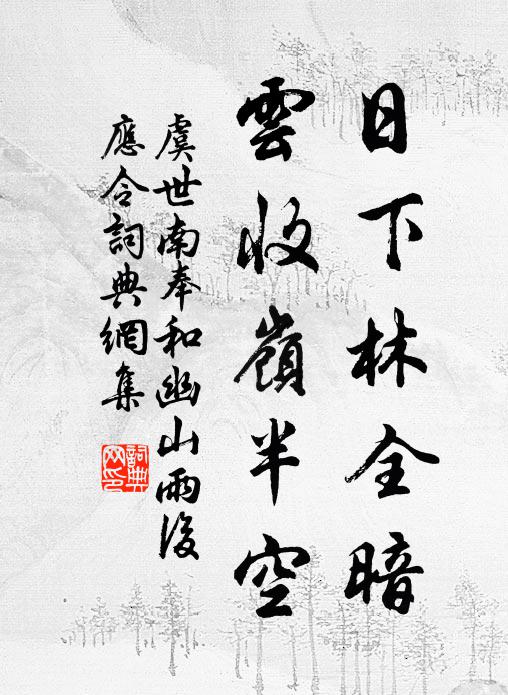 日下林全暗
雲收嶺半空
虞世南奉和幽山雨後
應令詞典網集
詞典網印